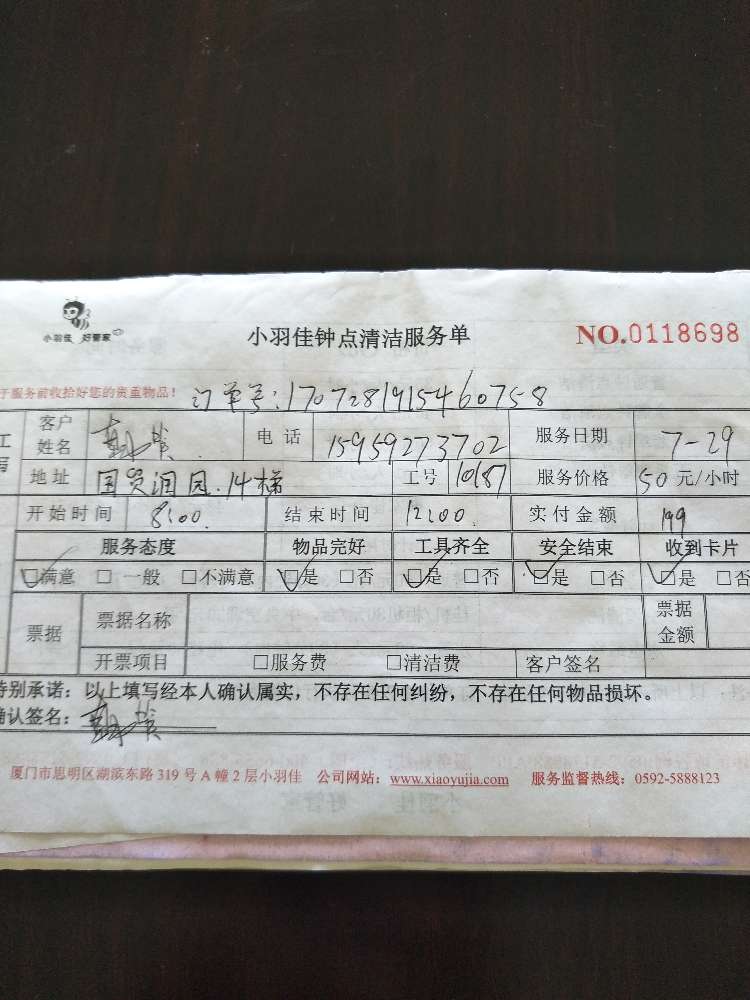 小羽佳 好管家
小羽佳钟点清洁服务单
NO.0118698
于服务前收拾好您的贵重物品!
订单号:170728191546 0758
工 客户姓名 电话 15959273702 服务日期 7-29
写 地址 国贸润园.14梯 工号 10187 服务价格 50元/小时
开始时间 8:00. 结束时间 12:00. 实付金额 199
服务态度 物品完好 工具齐全 安全结束 收到卡片
☑满意 □一般 □不满意 ☑是 □否 ☑是 □否 ☑是 □否 ☑是 □否
票据 票据名称 票据金额
开票项目 □服务费 □清洁费 客户签名
特别承诺:以上填写经本人确认属实,不存在任何纠纷,不存在任何物品损坏。
确认签名:
厦门市思明区湖滨东路319号A幢2层小羽佳 公司网站:www.xiaoyujia.com 服务监督热线:0592-5888123